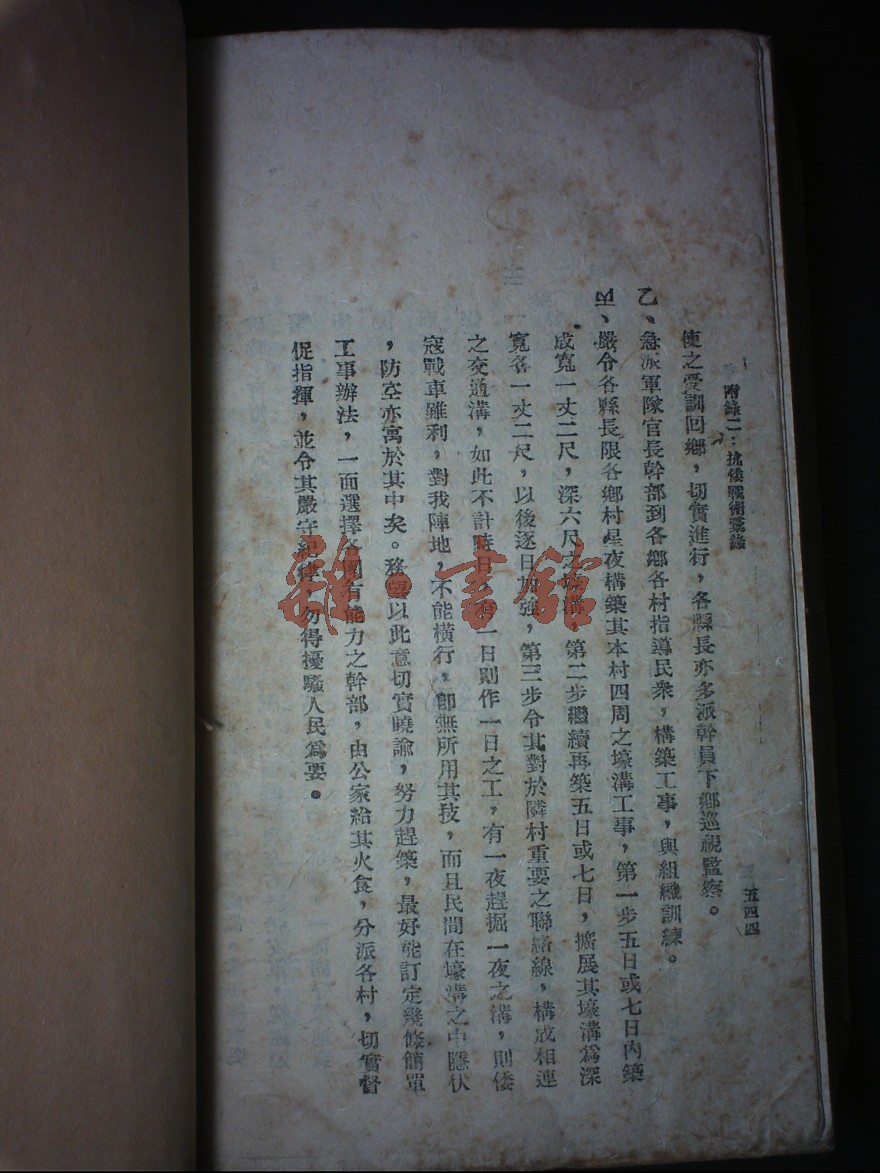 附錄二:抗倭戰術彙錄
五四四
使之受訓回鄉,切實進行,各縣長亦多派幹員下鄉巡視監察。
乙、急派軍隊官長幹部到各鄉各村指導民衆,構築工事,與組織訓練。
丙、嚴令各縣長限各鄉村星夜構築其本村四周之壕溝工事,第一步五日或七日內築
成寬一丈二尺,深六尺之壕溝,第二步繼續再築五日或七日,擴展其壕溝爲深
寬各一丈二尺,以後逐日加強,第三步令其對於隣村重要之聯絡線,構成相連
之交通溝,如此不計時日,有一日則作一日之工,有一夜趕掘一夜之溝,則倭
寇戰車雖利,對我陣地,不能橫行,卽無所用其技,而且民間在壕溝之中隱伏
,防空亦寓於其中矣。務望以此意切實曉諭,努力趕築,最好能訂定幾條簡單
工事辦法,一面選擇各團有能力之幹部,由公家給其火食,分派各村,切實督
促指揮,並令其嚴守紀律,勿得擾騷人民爲要。
雜·書館